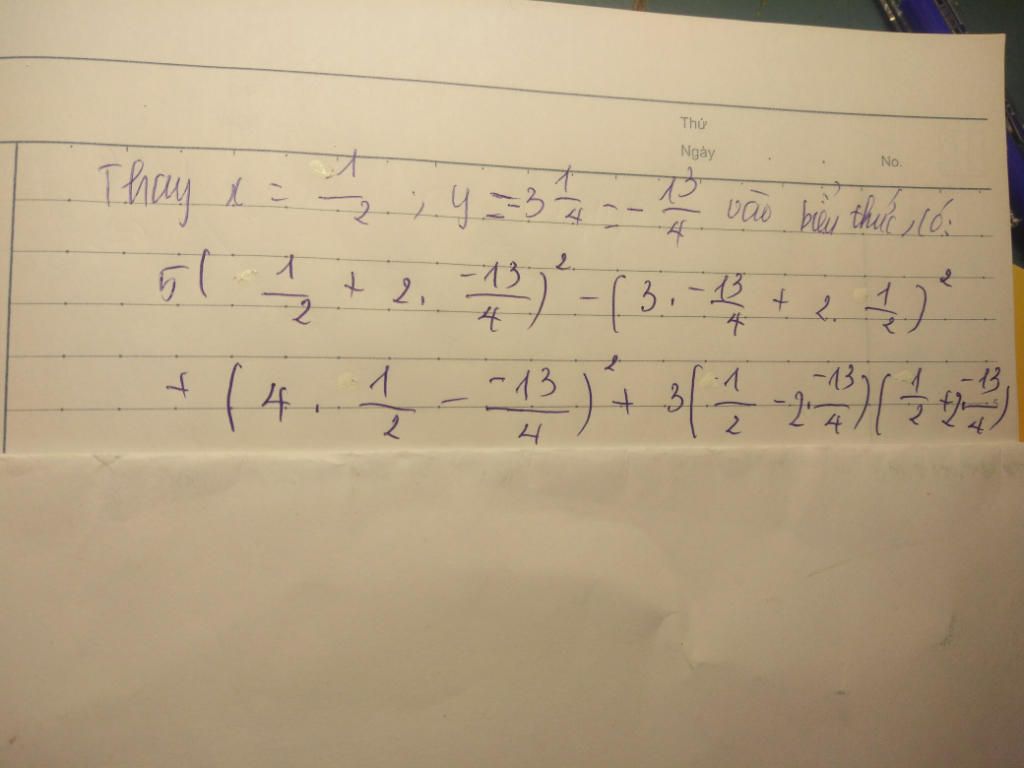 Thứ
Ngày
No.
Thay x = 1/2 ; y = -3 1/4 = - 13/4 vào biểu thức, có:
5( 1/2 + 2. -13/4 )² - ( 3. -13/4 + 2. 1/2 )²
+ ( 4 . 1/2 - -13/4 )² + 3( 1/2 - 2. -13/4 )( 1/2 + 2. -13/4 )